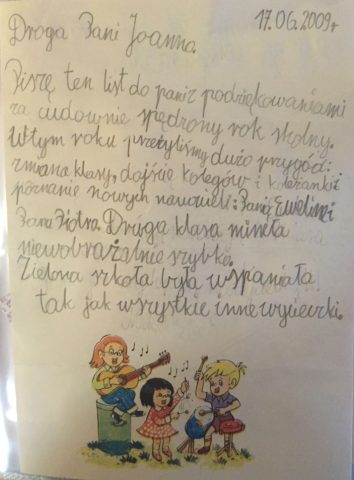 17.06.2009r
Droga Pani Joanno.
Piszę ten list do pani z podziękowaniami
za cudownie spędzony rok szkolny.
W tym roku przeżyliśmy dużo przygód:
zmiana klasy, dojście kolegów i koleżanki i
poznanie nowych nauczycieli: Panią Ewelinę i
Pana Piotra. Druga klasa minęła
niewobrażalnie szybko.
Zielona szkoła była wspaniała
tak jak wszystkie inne wycieczki.